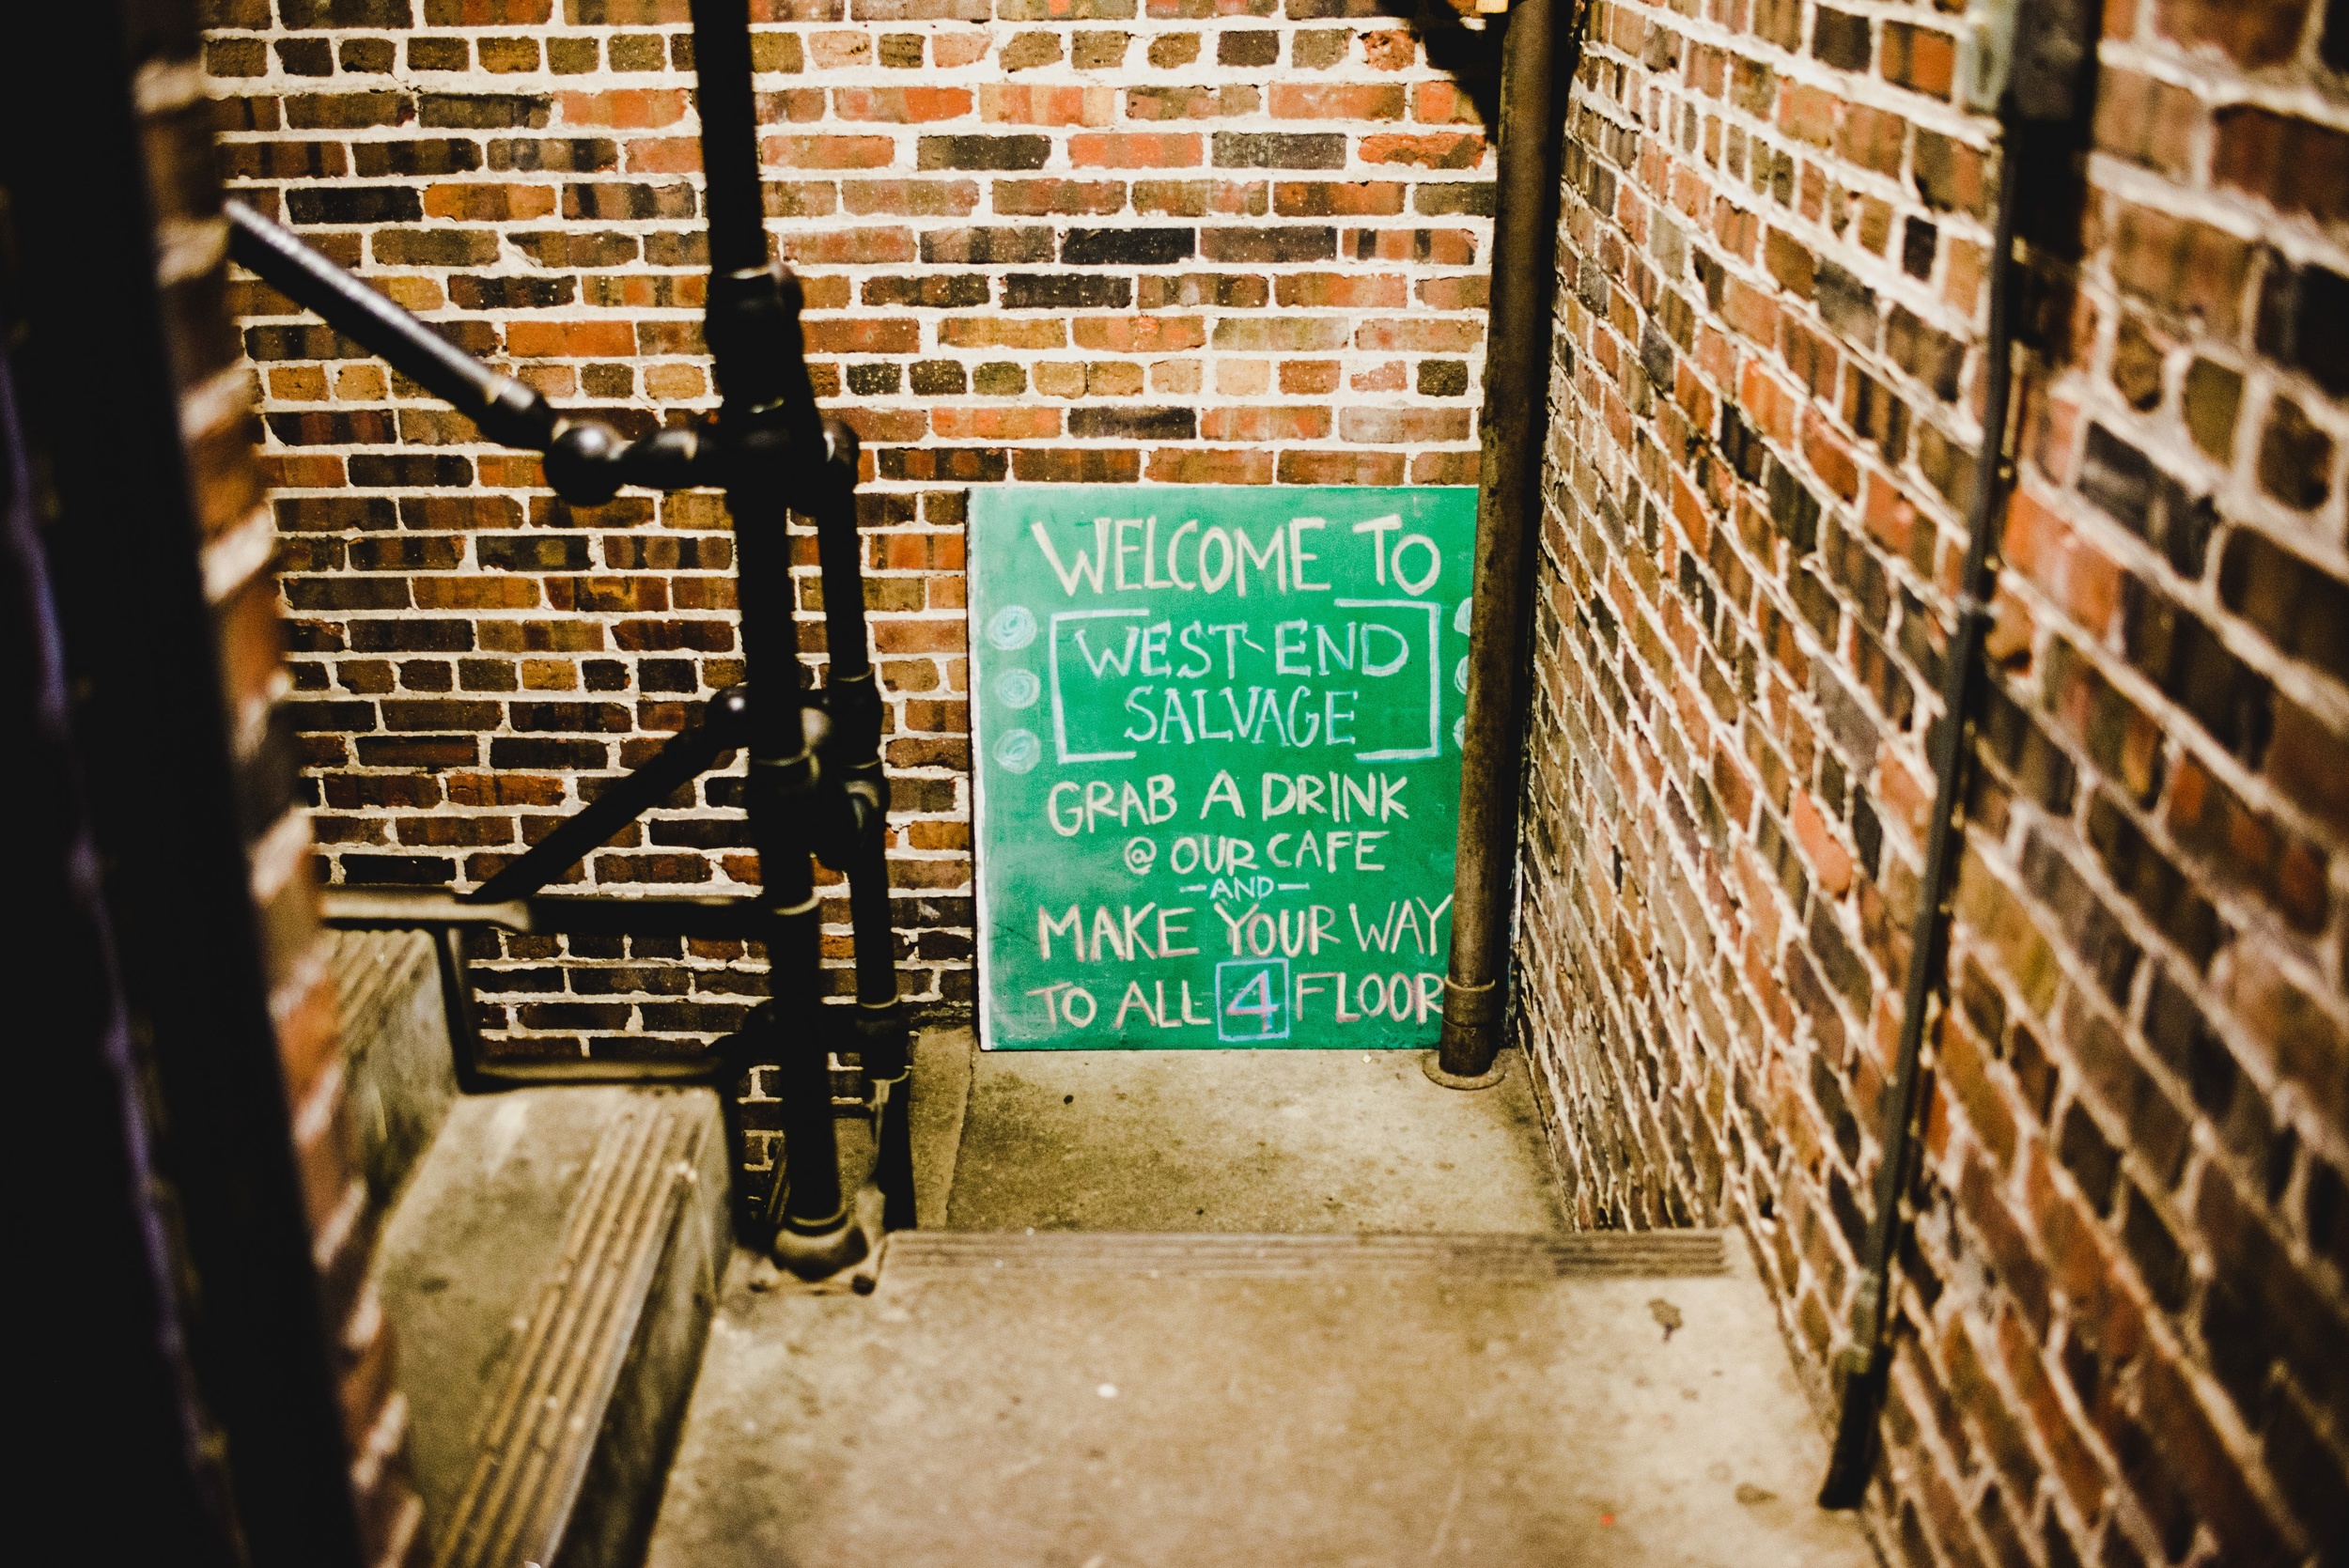 WELCOME TO
WEST END
SALVAGE
GRAB A DRINK
@ OUR CAFE
-AND-
MAKE YOUR WAY
TO ALL 4 FLOOR